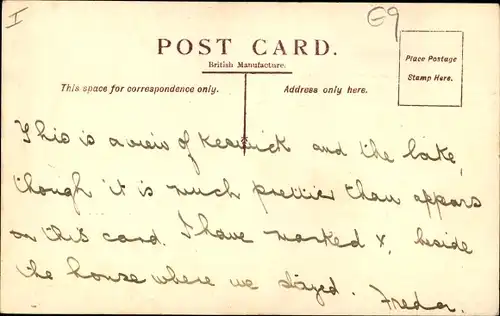 I
G9
POST CARD.
British Manufacture.
Place Postage
Stamp Here.
This space for correspondence only.
Address only here.
This is a view of Keswick and the lake,
though it is much prettier than appears
on this card. I have marked x, beside
the house where we stayed. Freda.